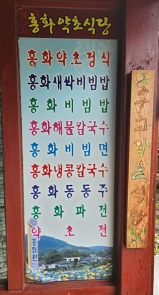 홍화약초식당
홍화약초정식
홍화새싹비빔밥
홍화비빔밥
홍화해물칼국수
홍화비빔면
홍화냉콩칼국수
홍화동동주
홍화파전
약초전
홍화원